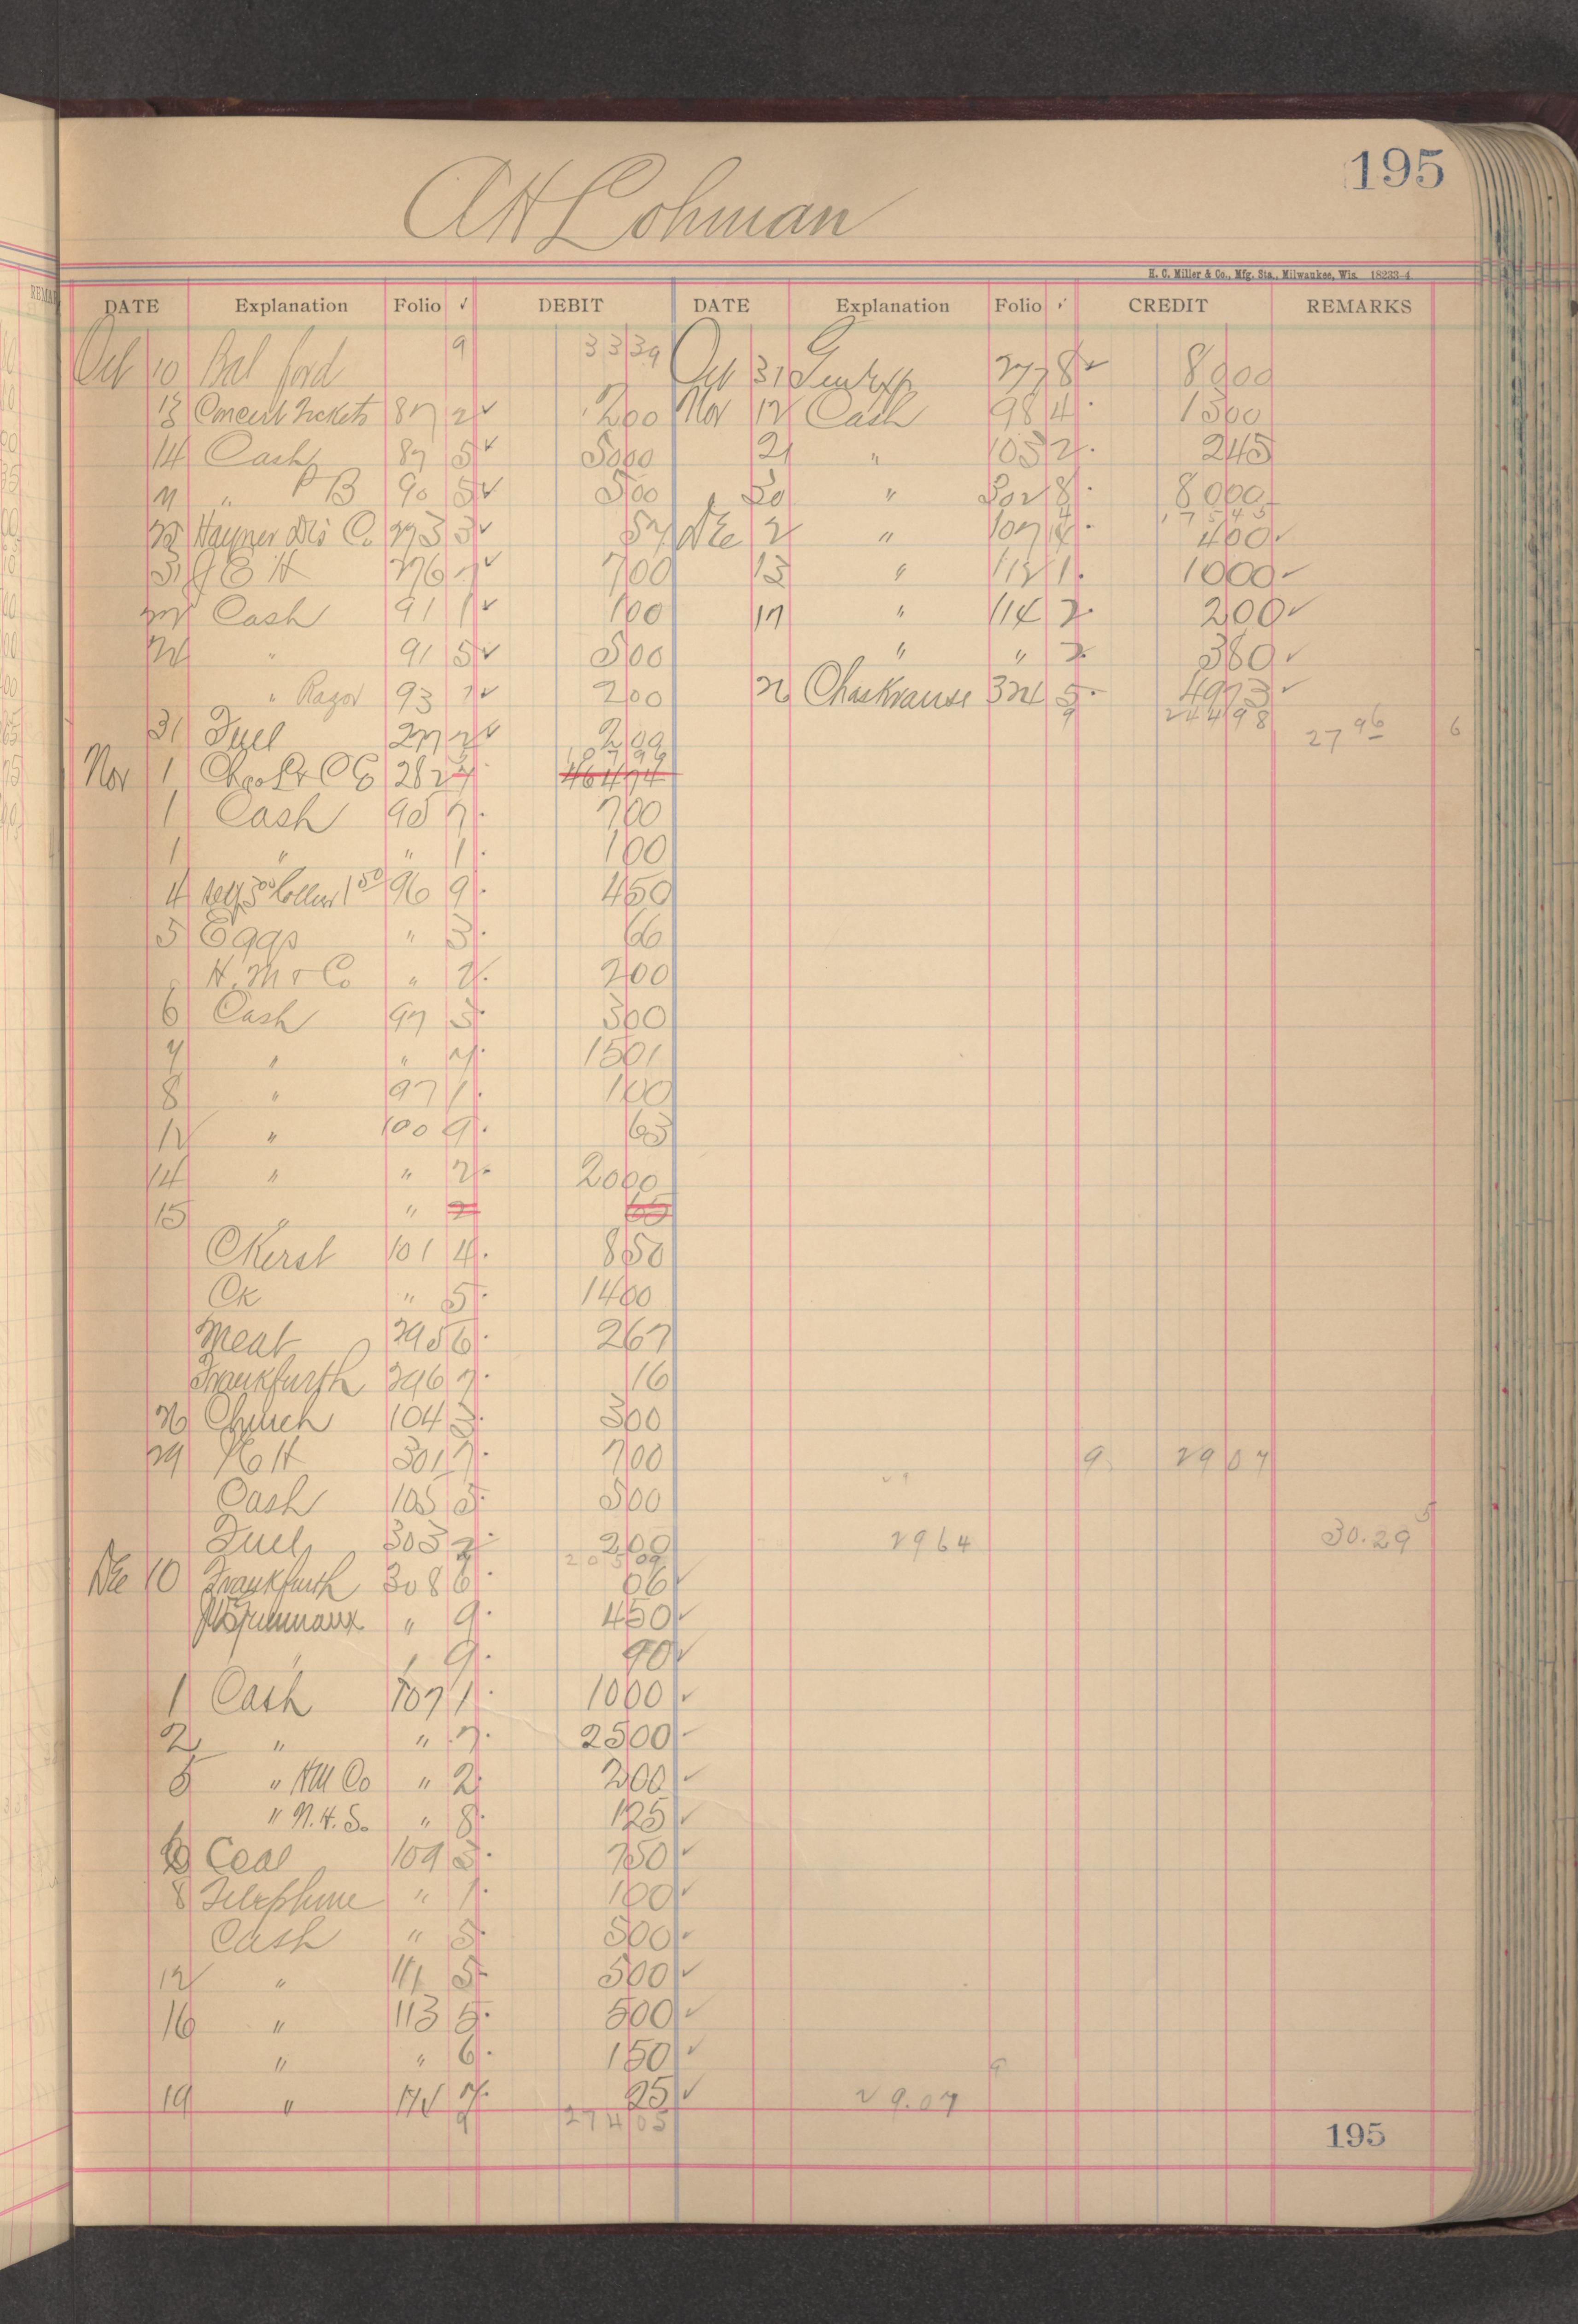 195
A H Lohman
H. C. Miller & Co., Mfg. Sta., Milwaukee, Wis. 18233-4
DATE Explanation Folio ✓ DEBIT DATE Explanation Folio ✓ CREDIT REMARKS
Oct 10 Bal ford 9 3339 Oct 31 277 8 ✓ 8000
13 Concert Tickets 87 2 ✓ 200 Nov 12 Cash 98 4 · 1300
14 Cash 87 5 ✓ 5000 21 " 103 2 · 245
" P B 90 5 ✓ 500 30 " 302 8 · 8000
17545
Hayner Co 273 3 ✓ 57 Dec 2 " 107 4 · 400 ✓
31 J E H 276 7 ✓ 700 13 " 112 1 · 1000 ✓
22 Cash 91 1 ✓ 100 17 " 114 2 · 200 ✓
" 91 5 ✓ 500 " " 2 380 ✓
" Razor 93 2 ✓ 200 26 Chas Krause 324 5 · 4973 ✓
9 24498
31 Fuel 277 2 ✓ 200 27 96 6
10799
Nov 1 282 46474
1 Cash 95 7 · 700
1 " " 1 · 100
4 Self 3 00 Collars 1 50 96 9 · 450
5 Eggs " 3 · 66
H. M & Co " 2 · 200
6 Cash 97 3 · 300
7 " " 7 · 1501
8 " 97 1 · 100
12 " 100 9 · 63
14 " " 2 · 2000
15 " " 2 65
C Kerst 101 4 · 850
CK " 5 · 1400
Meat 295 6 · 267
Frankfurth 296 7 · 16
26 Church 104 3 · 300
29 H 301 7 · 700 9 2907
Cash 105 5 · 500
Fuel 303 2 · 200 2964 30.29 5
20509
Dec 10 Frankfurth 308 6 · 06 ✓
" 9 · 450 ✓
" " 9 · 90 ✓
1 Cash 107 1 · 1000 ✓
2 " " 7 · 2500 ✓
5 " HM Co " 2 · 200 ✓
" N. H. S. " 8 · 125 ✓
6 Coal 109 3 · 750 ✓
8 Telephone " 1 · 100 ✓
Cash " 5 · 500 ✓
12 " 111 5 · 500 ✓
16 " 113 5 · 500 ✓
" " 6 · 150 ✓ 9
19 " 114 7 · 25 ✓ 29.07
9 27405
195